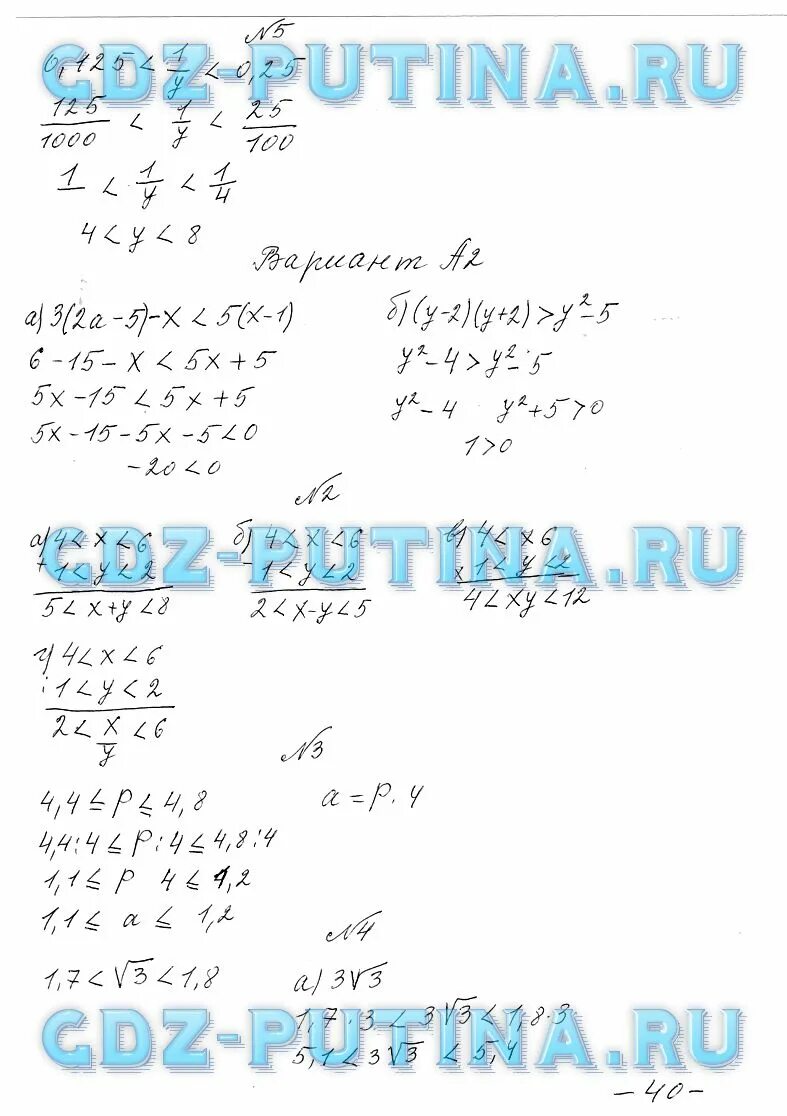 №5
0,125 < 1/y < 0,25
125/1000 < 1/y < 25/100
1 < 1/y < 1/4
4 < y < 8
Вариант А2
а) 3(2а-5)-x < 5(x-1)
6-15-x < 5x+5
5x-15 < 5x+5
5x-15-5x-5<0
-20<0
б) (y-2)(y+2)>y²-5
y²-4>y²-5
y²-4 y²+5>0
1>0
№2
а) 4< x <6
+ 1<y<2
5< x+y <8
б) 4<x<6
- 1<y<2
2<x-y<5
в) 4< x 6
x 1<y<2
4<xy<12
г) 4<x<6
: 1<y<2
2< x/y <6
№3
4,4 ≤ P ≤ 4,8
a = P. 4
4,4:4 ≤ P:4 ≤ 4,8:4
1,1 ≤ P 4 ≤ 1,2
1,1 ≤ a ≤ 1,2
№4
1,7 < √3 < 1,8
а) 3√3
1,7·3 < 3√3 < 1,8·3
5,1<3√3 <5,4
-40-
GDZ-PUTINA.RU
GDZ-PUTINA.RU
GDZ-PUTINA.RU